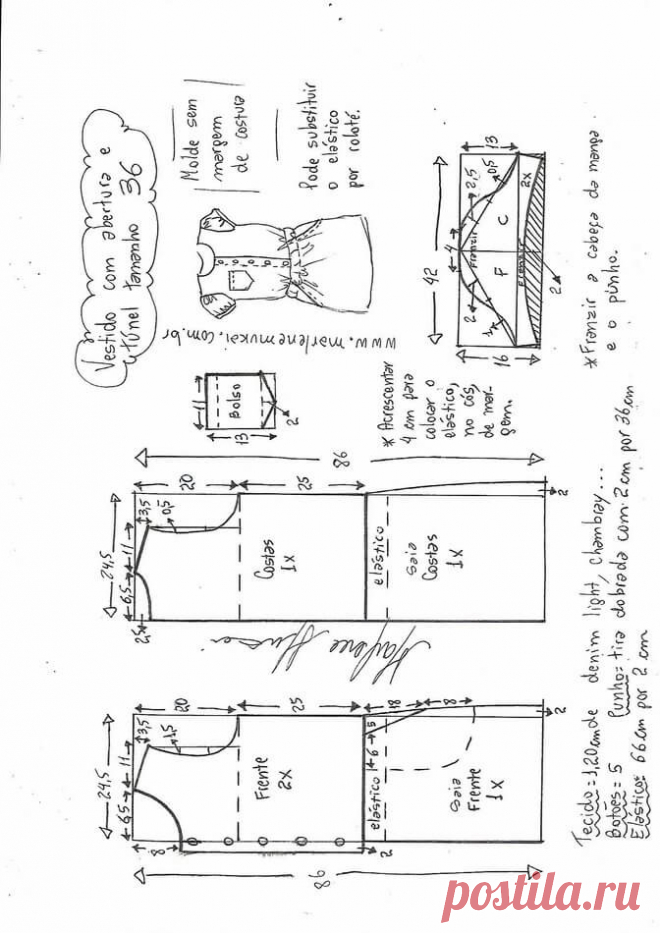 Vestido com abertura e
túnel tamanho 36
Molde sem
margem
de costura
Pode substituir
o elástico
por roloté.
www.marlenemukai.com.br
11
Bolso
13
2
* Acrescentar
4 cm para
colocar o
elástico,
no cós,
de mar-
gem.
42
4
13
2,5
0,5
Franzir
2
1
F
C
2x
Franzir
16
2
* Franzir a cabeça da manga
e o punho.
86
20
25
24,5
3,5
11
6,5
0,5
25
Costas
1x
elástico
saia
Costas
1x
2
Marlene Mukai
20
25
18
8
24,5
3,5
11
6,5
1,5
5
6
8
Frente
2x
elástico
saia
Frente
1x
2
2
86
Tecido = 1,20cm de denim light, chambray...
Botões = 5 Punho = tira dobrada com 2 cm por 36 cm
Elástico = 66 cm por 2 cm
postila.ru